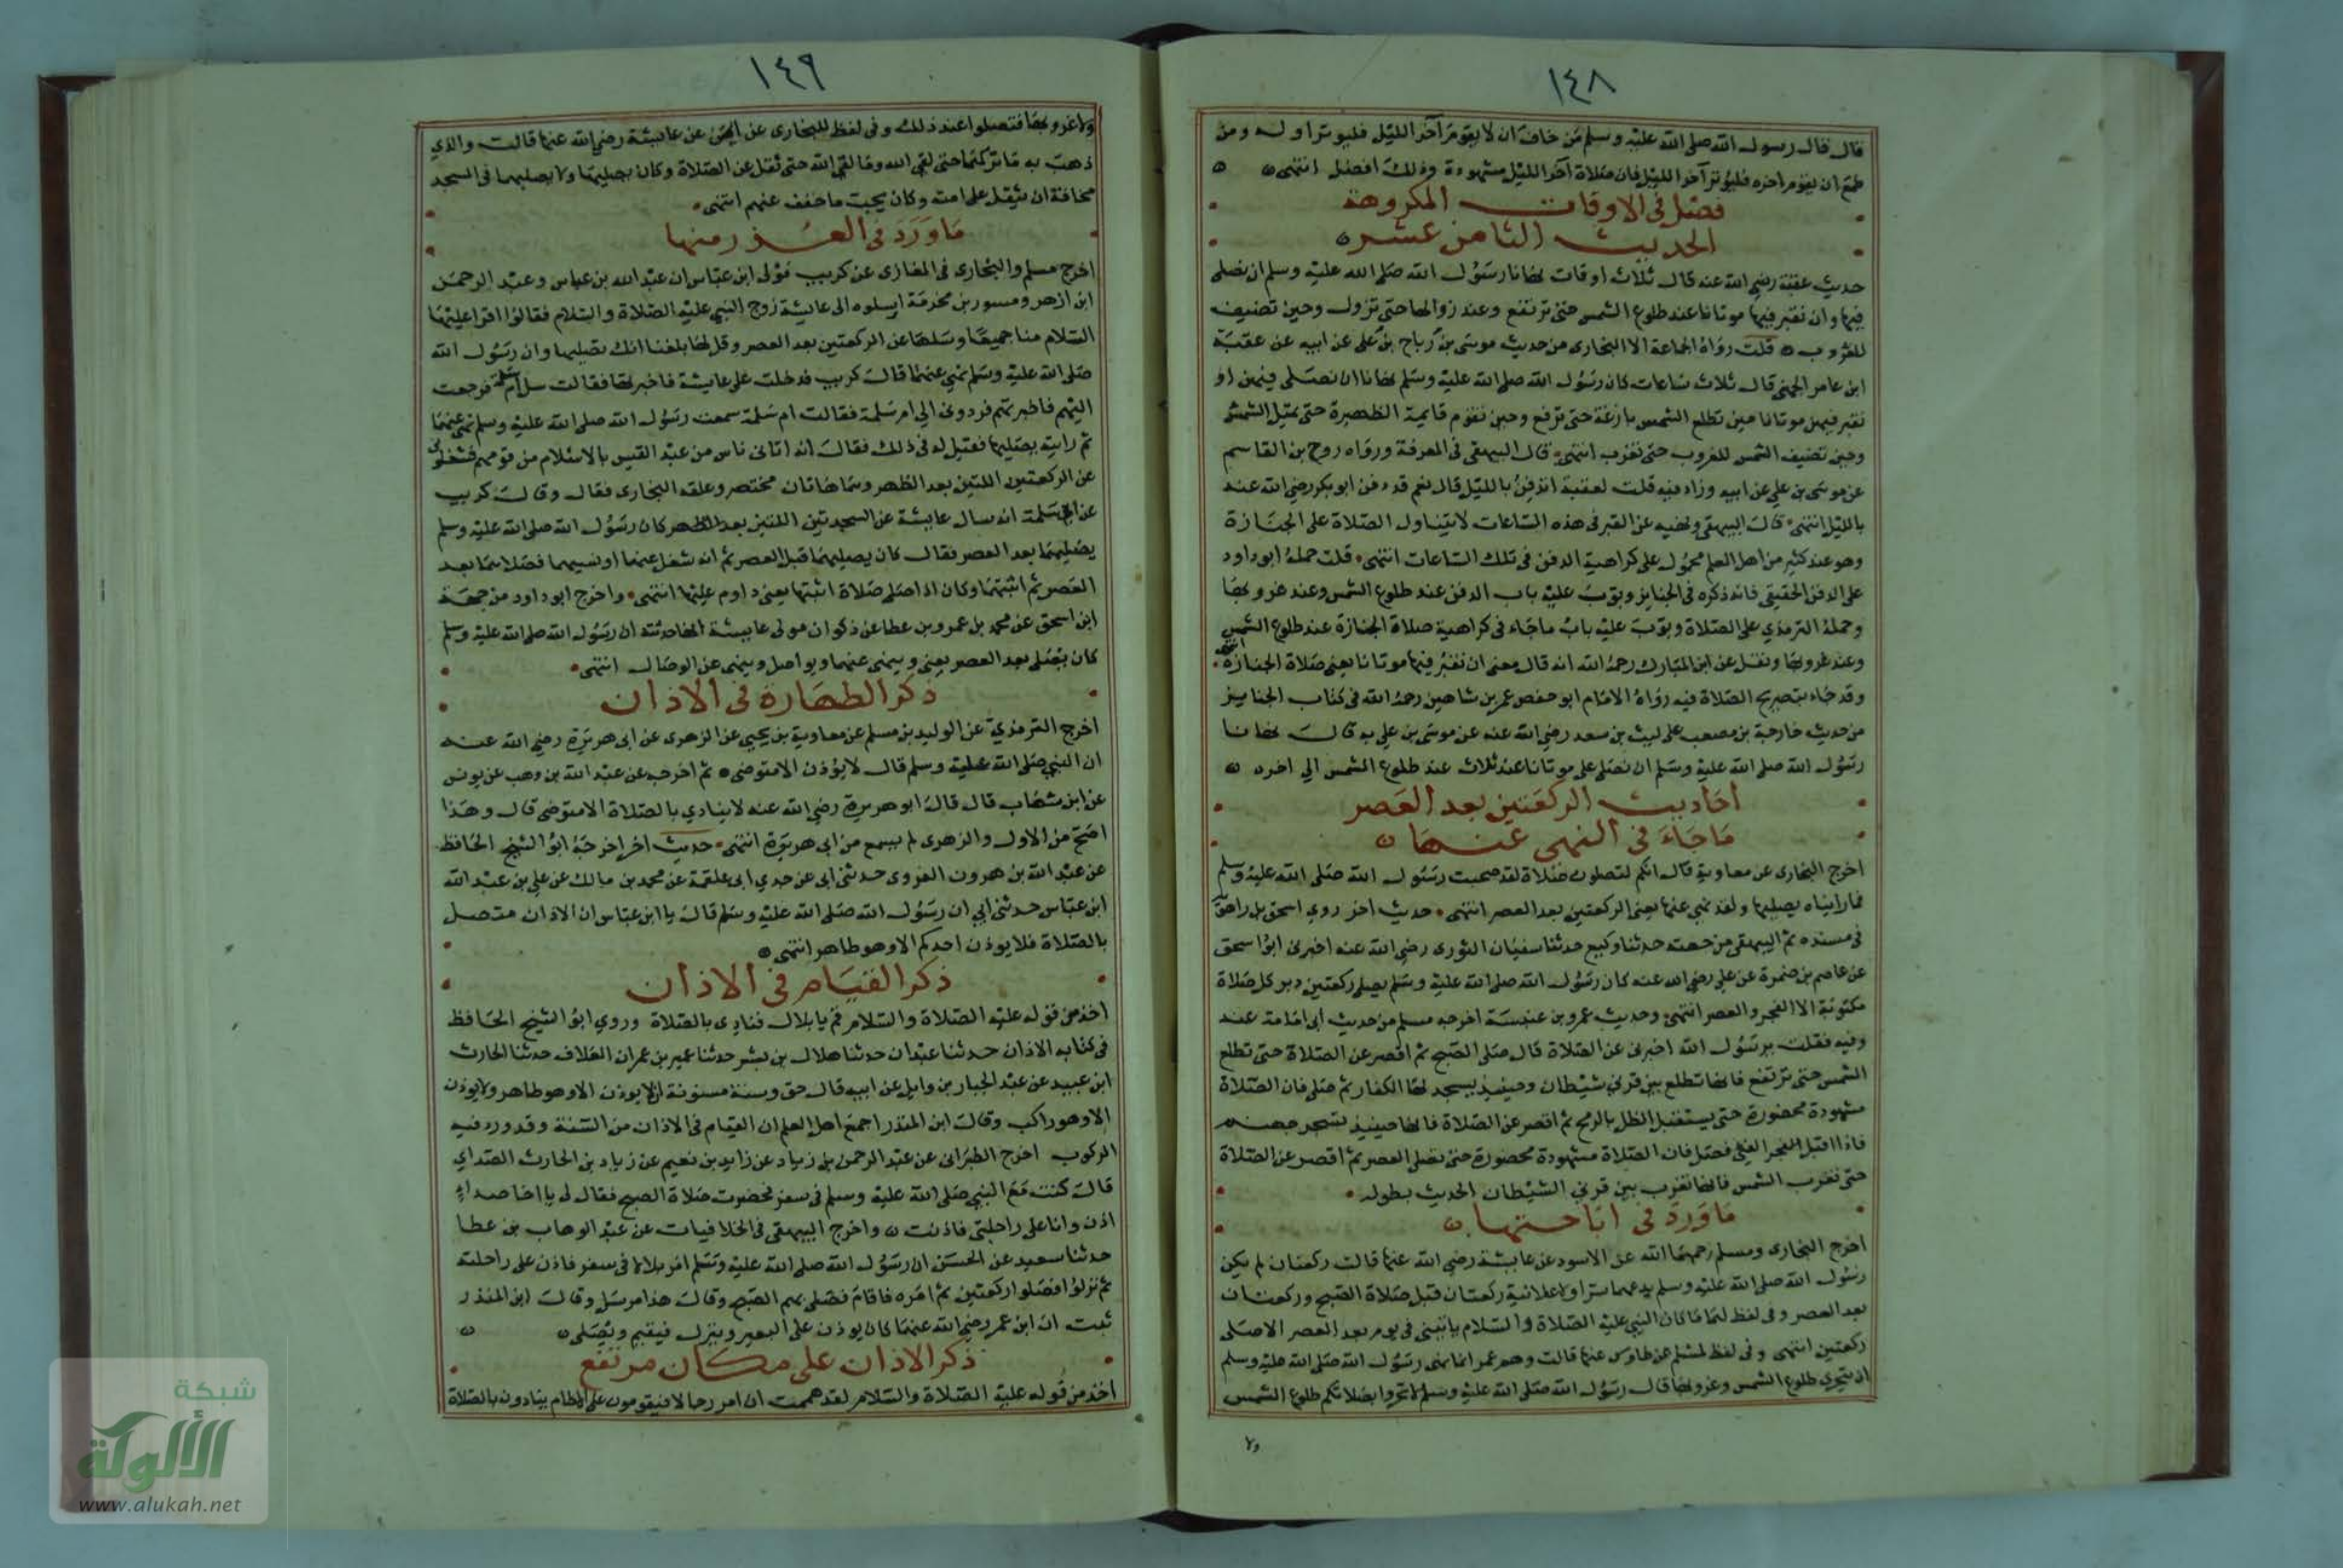 ١٤٨
قال قال رسول الله صلى الله عليه وسلم من خاف ان لا يقوم آخر الليل فليوتر اوله ومن
طمع ان يقوم اخره فليوتر آخر الليل فان صلاة آخر الليل مشهودة وذلك افضل انتهى
فصل في الاوقات المكروهة
الحديث الثامن عشر
حديث عقبة رضي الله عنه قال ثلاث اوقات نهانا رسول الله صلى الله عليه وسلم ان نصلى
فيها وان نقبر فيها موتانا عند طلوع الشمس حتى ترتفع وعند زوالها حتى تزول وحين تضيف
للغروب قلت رواه الجماعة الا البخارى من حديث موسى بن رباح بن على عن ابيه عن عقبة
ابن عامر الجهنى قال ثلاث ساعات كان رسول الله صلى الله عليه وسلم نهانا ان نصلى فيهن او
نقبر فيهن موتانا حين تطلع الشمس بازغة حتى ترفع وحين تقوم قايمة الظهيرة حتى تميل الشمس
وحين تضيف الشمس للغروب حتى تغرب انتهى قال البيهقى فى المعرفة ورواه روح بن القاسم
عن موسى بن على عن ابيه وزاد فيه قلت لعقبة ايدفن بالليل قال نعم قد دفن ابو بكر رضي الله عنه
بالليل انتهى قال البيهقى ونهيه عن القبر فى هذه الساعات لا يتناول الصلاة على الجنازة
وهو عند كثير من اهل العلم محمول على كراهية الدفن فى تلك الساعات انتهى قلت حمله ابو داود
على الدفن الحقيقى فانه ذكره فى الجنايز وبوب عليه باب الدفن عند طلوع الشمس وعند غروبها
وحمله الترمذي على الصلاة وبوب عليه باب ما جاء فى كراهية صلاة الجنازة عند طلوع الشمس
وعند غروبها ونقل عن ابن المبارك رحمه الله انه قال معنى ان نقبر فيها موتانا يعنى صلاة الجنازة انتهى
وقد جاء بتصريح الصلاة فيه رواه الامام ابو حفص عمر بن شاهين رحمه الله فى كتاب الجنايز
من حديث خارجة بن مصعب على ليث بن سعد رضي الله عنه عن موسى بن على به قال نهانا
رسول الله صلى الله عليه وسلم ان نصلى على موتانا عند ثلاث عند طلوع الشمس الي اخره
احاديث الركعتين بعد العصر
ما جاء في النهى عنها
اخرج البخارى عن معاوية قال انكم لتصلون صلاة لقد صحبت رسول الله صلى الله عليه وسلم
فما رايناه يصليها ولقد نهي عنها يعنى الركعتين بعد العصر انتهى حديث اخر روي اسحق بن راهويه
فى مسنده ثم البيهقى من جهته حدثنا وكيع حدثنا سفيان الثورى رضى الله عنه اخبرنى ابو اسحق
عن عاصم بن ضمرة عن على رضى الله عنه كان رسول الله صلى الله عليه وسلم يصلى ركعتين دبر كل صلاة
مكتوبة الا الفجر والعصر انتهى وحديث عمرو بن عنبسة اخرجه مسلم من حديث ابى امامة عنه
وفيه فقلت يرسول الله اخبرنى عن الصلاة قال صلى الصبح ثم اقصر عن الصلاة حتى تطلع
الشمس حتى ترتفع فانها تطلع بين قرني شيطان وحينيذ يسجد لها الكفار ثم صلى فان الصلاة
مشهودة محضورة حتى يستقبل الظل بالرمح ثم اقصر عن الصلاة فانها حينيذ تسجر جهنم
فاذا اقبل الفئ فصل فان الصلاة مشهودة محضورة حتى تصلى العصر ثم اقصر عن الصلاة
حتى تغرب الشمس فانها تغرب بين قرني الشيطان الحديث بطوله
ما ورد فى اباحتها
اخرج البخارى ومسلم رحمهما الله عن الاسود عن عايشة رضي الله عنها قالت ركعتان لم يكن
رسول الله صلى الله عليه وسلم يدعهما سرا ولا علانية ركعتان قبل صلاة الصبح وركعتان
بعد العصر وفى لفظ لهما ما كان النبي عليه الصلاة والسلام ياتينى فى يوم بعد العصر الا صلى
ركعتين انتهى وفى لفظ لمسلم عن طاوس عنها قالت وهم عمر انما نهى رسول الله صلى الله عليه وسلم
ان يتحري طلوع الشمس وغروبها قال رسول الله صلى الله عليه وسلم لا تتحروا بصلاتكم طلوع الشمس
ولا
١٤٩
ولا غروبها فتصلوا عند ذلك وفى لفظ للبخارى عن ايمن عن عايشة رضى الله عنها قالت والذي
ذهب به ما تركهما حتى لقي الله وما لقي الله حتى ثقل عن الصلاة وكان يصليهما ولا يصليهما فى المسجد
مخافة ان تثقل على امته وكان يحب ما خفف عنهم انتهى
ما ورد فى العذر منها
اخرج مسلم والبخارى فى المغازى عن كريب مولى ابن عباس ان عبد الله بن عباس وعبد الرحمن
ابن ازهر ومسور بن مخرمة ارسلوه الى عايشة زوج النبي عليه الصلاة والسلام فقالوا اقرا عليها
السلام منا جميعا وسلها عن الركعتين بعد العصر وقل لها بلغنا انك تصليها وان رسول الله
صلى الله عليه وسلم نهي عنهما قال كريب فدخلت على عايشة فاخبرتها فقالت سل ام سلمة فرجعت
اليهم فاخبرتهم فردونى الي ام سلمة فقالت ام سلمة سمعت رسول الله صلى الله عليه وسلم نهى عنهما
ثم رايته يصليها فقيل له فى ذلك فقال انه اتانى ناس من عبد القيس بالاسلام من قومهم فشغلونى
عن الركعتين اللتين بعد الظهر وهما هاتان مختصر وعلقه البخارى فقال وقال كريب
عن ابى سلمة انه سال عايشة عن السجدتين اللتين بعد الظهر كان رسول الله صلى الله عليه وسلم
يصليهما بعد العصر فقال كان يصليهما قبل العصر ثم انه شغل عنهما او نسيهما فصلاهما بعد
العصر ثم اثبتهما وكان اذا صلى صلاة اثبتها يعنى داوم عليها انتهى واخرج ابو داود من جهة
ابن اسحق عن محمد بن عمرو بن عطا عن ذكوان مولى عايشة انها حدثته ان رسول الله صلى الله عليه وسلم
كان يصلى بعد العصر يعنى وينهى عنهما ويواصل وينهى عن الوصال انتهى
ذكر الطهارة فى الاذان
اخرج الترمذي عن الوليد بن مسلم عن معاوية بن يحيى عن الزهرى عن ابى هريرة رضي الله عنه
ان النبي صلى الله عليه وسلم قال لا يؤذن الا متوضى ثم اخرجه عن عبد الله بن وهب عن يونس
عن ابن شهاب قال قال ابو هريرة رضي الله عنه لا ينادي بالصلاة الا متوضى قال وهذا
اصح من الاول والزهرى لم يسمع من ابى هريرة انتهى حديث اخر اخرجه ابو الشيخ الحافظ
عن عبد الله بن هرون الفروى حدثنى ابى عن جدي ابى علقمة عن محمد بن مالك عن على بن عبد الله
ابن عباس حدثنى ابي ان رسول الله صلى الله عليه وسلم قال يا ابن عباس ان الاذان متصل
بالصلاة فلا يوذن احدكم الا وهو طاهر انتهى
ذكر القيام فى الاذان
اخذ من قوله عليه الصلاة والسلام قم يا بلال فنادى بالصلاة وروي ابو الشيخ الحافظ
فى كتابه الاذان حدثنا عبدان حدثنا هلال بن بشر حدثنا عمير بن عمران العلاف حدثنا الحارث
ابن عبيد عن عبد الجبار بن وايل عن ابيه قال حق وسنة مسنونة ان لا يوذن الا وهو طاهر ولا يوذن
الا وهو راكب وقال ابن المنذر اجمع اهل العلم ان القيام فى الاذان من السنة وقد ورد فيه
الركوب اخرج الطبرانى عن عبد الرحمن بن زياد عن زايد بن نعيم عن زياد بن الحارث الصداي
قال كنت مع النبي صلى الله عليه وسلم فى سفر فحضرت صلاة الصبح فقال لى يا اخا صداء
اذن وانا على راحلتى فاذنت واخرج البيهقى فى الخلافيات عن عبد الوهاب بن عطا
حدثنا سعيد عن الحسن ان رسول الله صلى الله عليه وسلم امر بلالا فى سفر فاذن على راحلته
ثم نزلوا فصلوا ركعتين ثم امره فاقام فصلى بهم الصبح وقال هذا مرسل وقال ابن المنذر
ثبت ان ابن عمر رضي الله عنهما كان يوذن على البعير وينزل فيقيم ويصلى
ذكر الاذان على مكان مرتفع
اخذ من قوله عليه الصلاة والسلام لقد هممت ان امر رجالا فيقومون على الاطام ينادون بالصلاة
شبكة
الألوكة
www.alukah.net